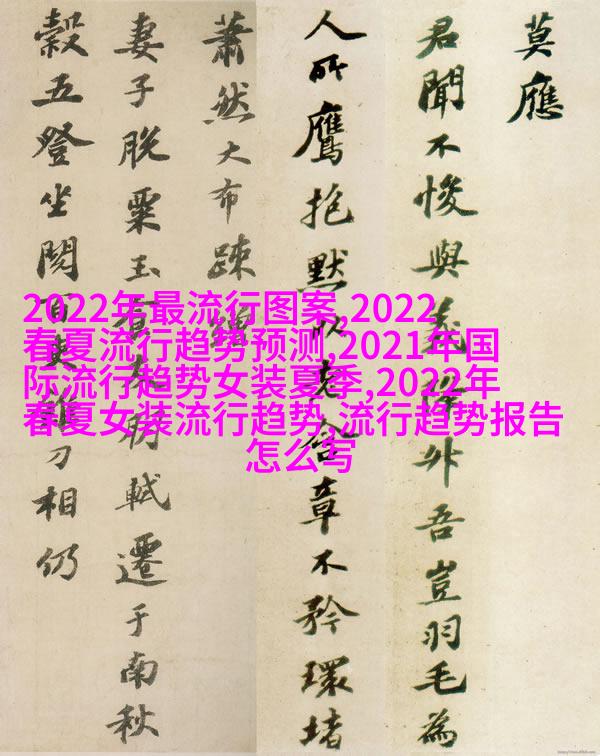 莫應
君聞不悛與義降升吾豈羽毛為
人所鷹抱默以老含章不矜環堵
蕭然大布疎繒
妻子脫粟玉食友朋軾遷于南秋
穀五登坐閱百吏錐刀相仍
2022年最流行图案,2022
春夏流行趋势预测,2021年国
际流行趋势女装夏季,2022年
春夏女装流行趋势,流行趋势报告
怎么写